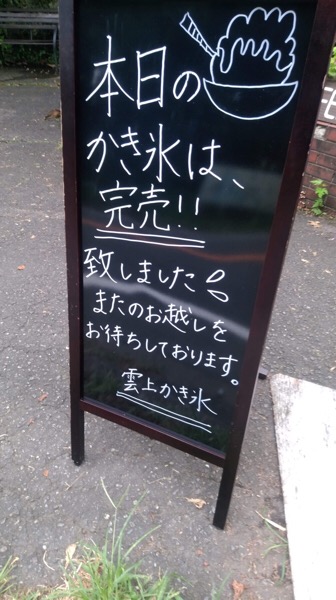 本日の
かき氷は、
完売!!
致しました
またのお越しを
お待ちしております。
雲上かき氷